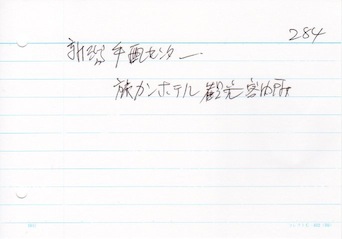 284
新宿手配センター
旅カンホテル観光案内所